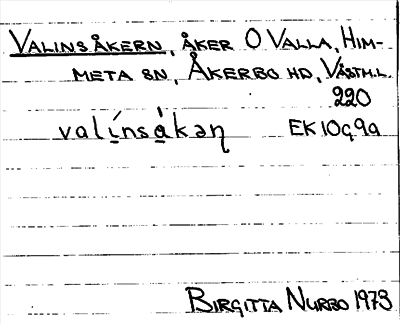 VALINSÅKERN, ÅKER O VALLA, HIM-
META SN, ÅKERBO HD, VÄSTM.L.
220
valínsåkəɳ EK 10G9a
BIRGITTA NURBO 1973